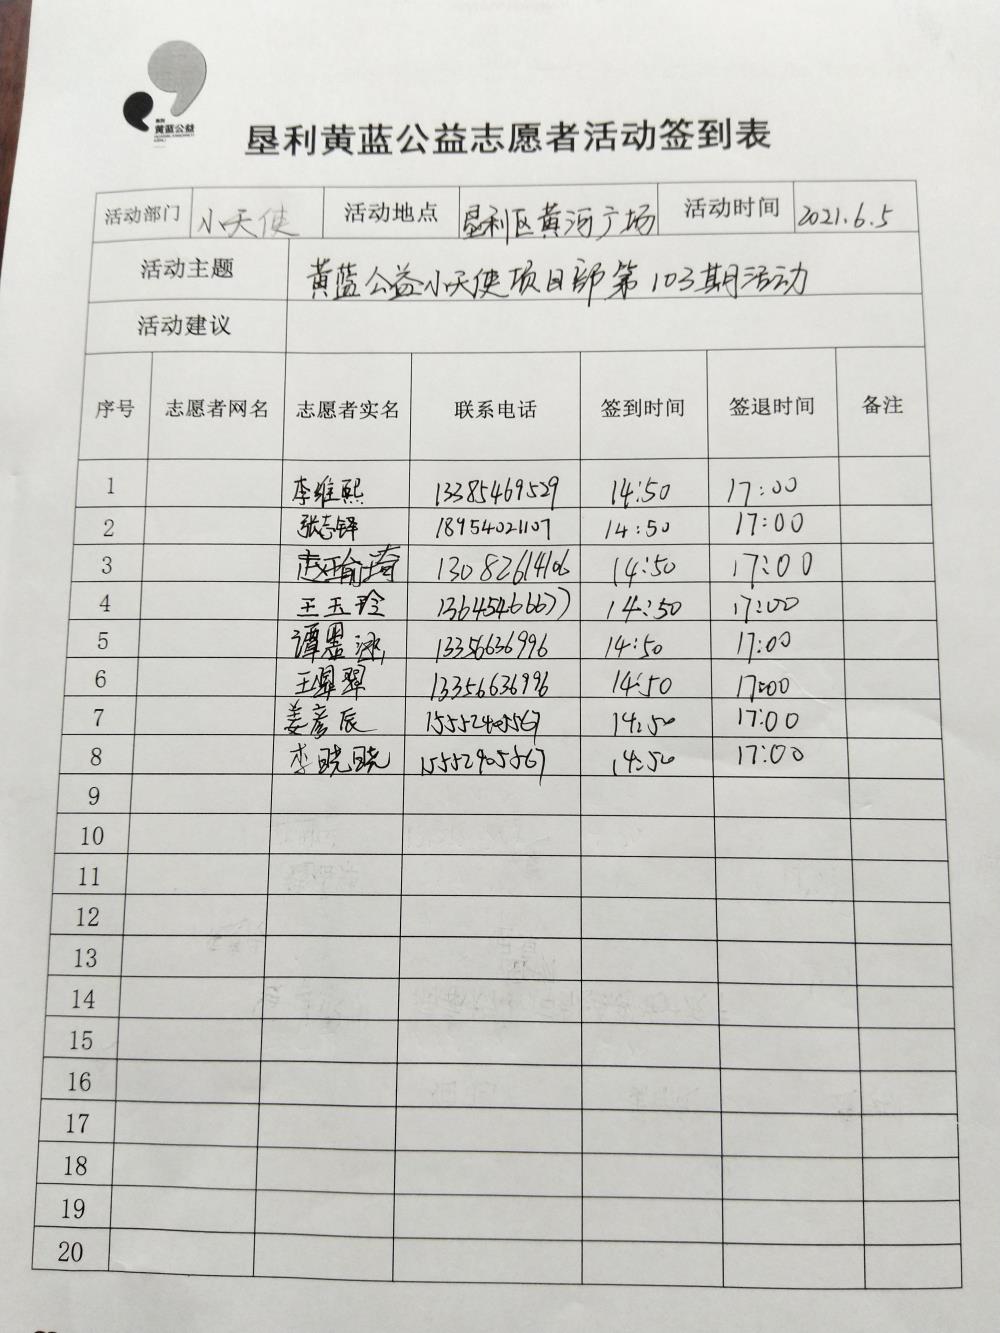 黄蓝公益
垦利黄蓝公益志愿者活动签到表
活动部门 小天使 活动地点 垦利区黄河广场 活动时间 2021.6.5
活动主题 黄蓝公益小天使项目部第103期活动
活动建议
序号 志愿者网名 志愿者实名 联系电话 签到时间 签退时间 备注
1 李维熙 13385469529 14:50 17:00
2 张志铎 18954021107 14:50 17:00
3 13082614106 14:50 17:00
4 王玉玲 13645466677 14:50 17:00
5 谭墨涵 13356636996 14:50 17:00
6 13356636996 14:50 17:00
7 姜彦辰 15552405567 14:50 17:00
8 李晓晓 15552405567 14:50 17:00
9
10
11
12
13
14
15
16
17
18
19
20